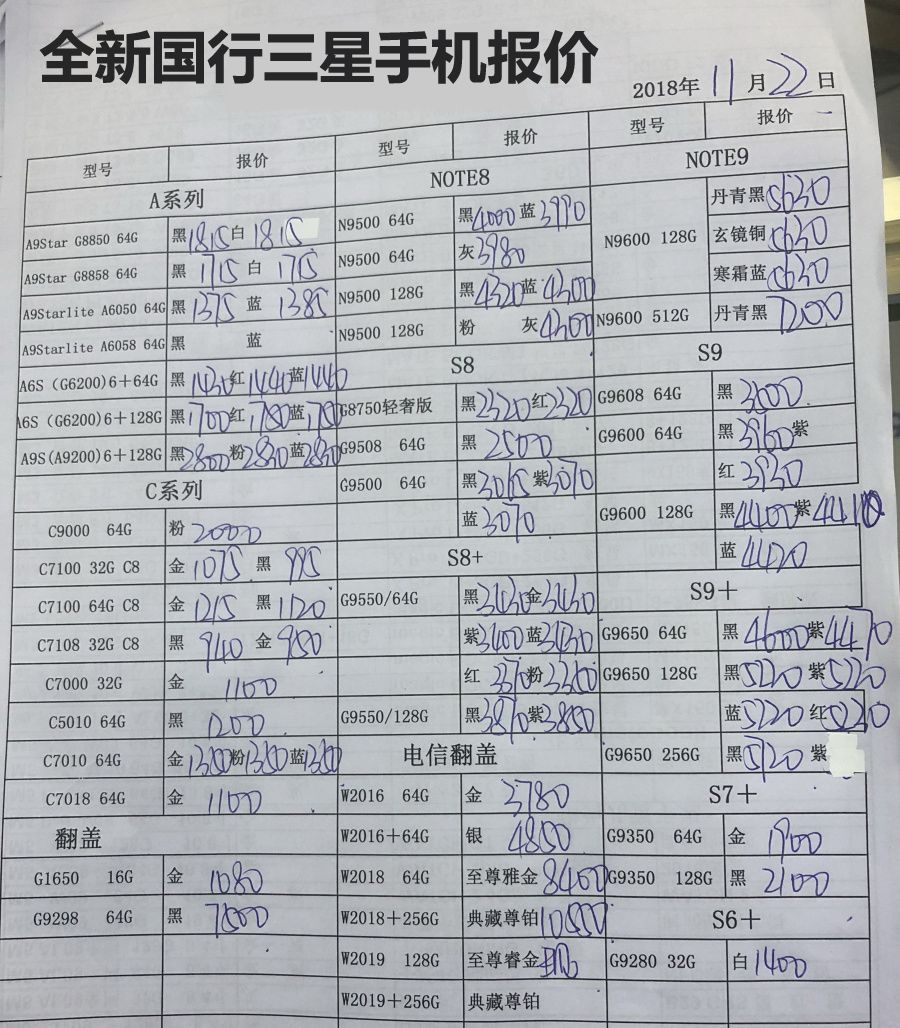 全新国行三星手机报价
2018年11月22日
型号 报价
A系列
A9Star G8850 64G 黑1815白1815
A9Star G8858 64G 黑1715白1715
A9Starlite A6050 64G 黑1375 蓝1385
A9Starlite A6058 64G 黑 蓝
A6S (G6200)6+64G 黑1430红1440蓝1440
A6S (G6200)6+128G 黑1700红1780蓝1780
A9S(A9200)6+128G 黑2800粉2830蓝2830
C系列
C9000 64G 粉2000
C7100 32G C8 金1075 黑995
C7100 64G C8 金1215 黑1120
C7108 32G C8 黑940 金950
C7000 32G 金1100
C5010 64G 黑1200
C7010 64G 金1350粉1350蓝1350
C7018 64G 金1100
翻盖
G1650 16G 金1080
G9298 64G 黑
型号 报价
NOTE8
N9500 64G 黑4000蓝3990
N9500 64G 灰3980
N9500 128G 黑4320蓝4300
N9500 128G 粉 灰4300
S8
G8750轻奢版 黑2320红2320
G9508 64G 黑2500
G9500 64G 黑3065紫3070
蓝3070
S8+
G9550/64G 黑3430金3430
紫3400蓝3430
红3370粉3360
G9550/128G 黑3870紫3850
电信翻盖
W2016 64G 金3780
W2016+64G 银4850
W2018 64G 至尊雅金8400
W2018+256G 典藏尊铂10550
W2019 128G 至尊睿金
W2019+256G 典藏尊铂
型号 报价
NOTE9
N9600 128G 丹青黑5630
玄镜铜5630
寒霜蓝5630
N9600 512G 丹青黑7200
S9
G9608 64G 黑3600
G9600 64G 黑3960紫
红3930
G9600 128G 黑4400紫
蓝4420
S9+
G9650 64G 黑4600紫4470
G9650 128G 黑5220紫5220
蓝5220红5220
G9650 256G 黑5120紫
S7+
G9350 64G 金1900
G9350 128G 黑2100
S6+
G9280 32G 白1400